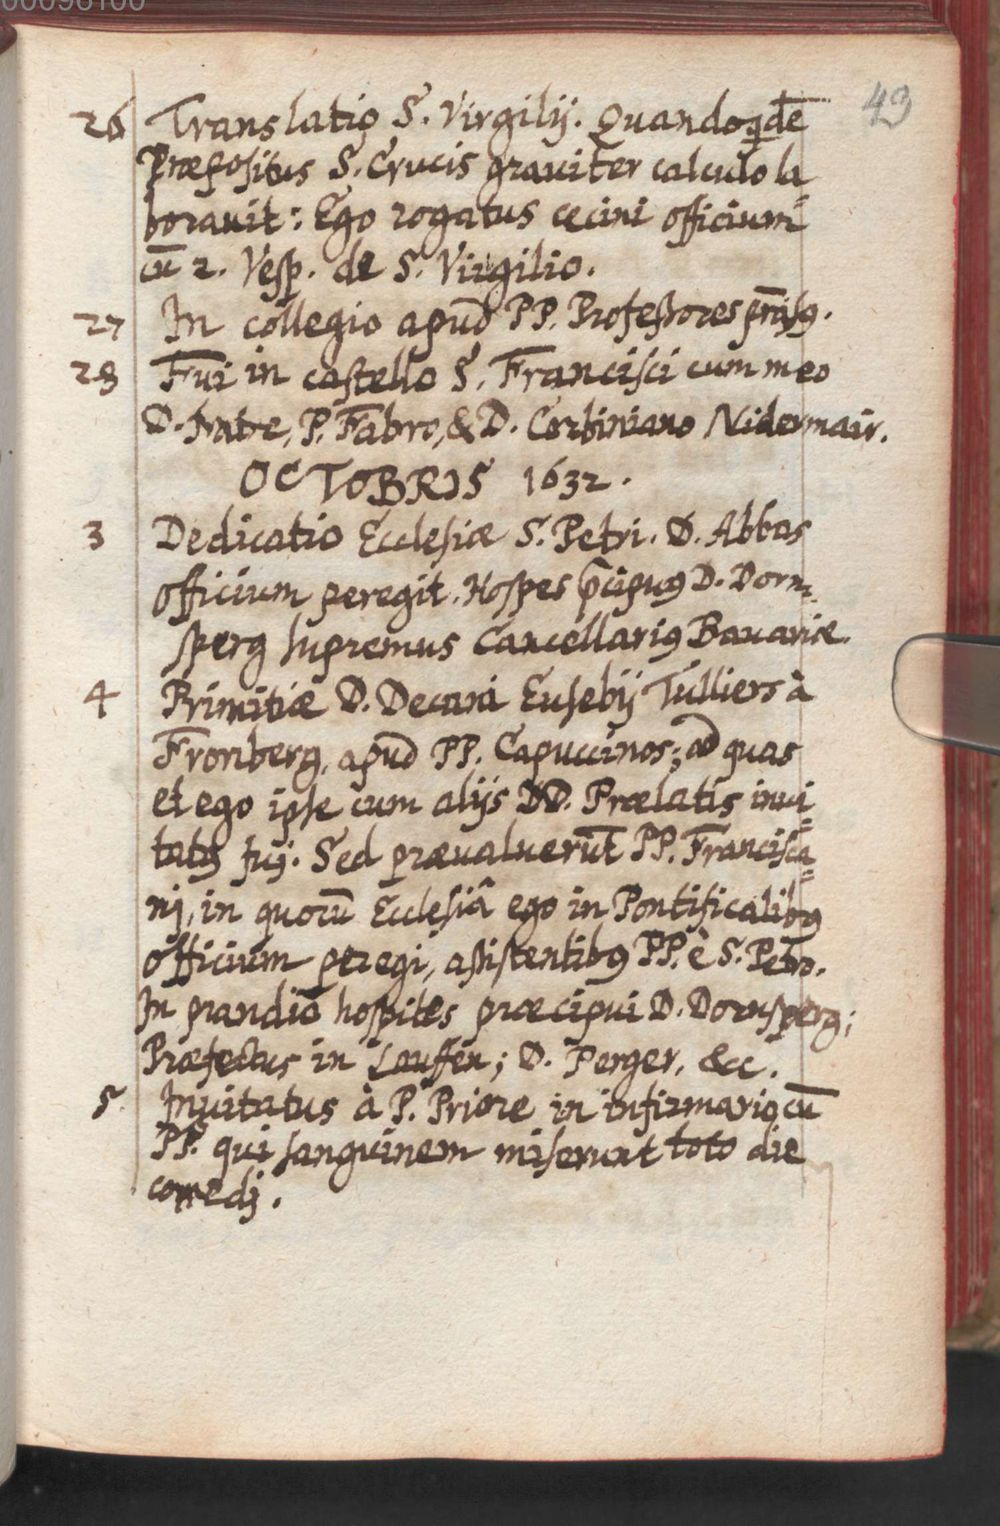 00098100
49
26 Translatio S. Virgilij. Quandoq̃dẽ
Præpositus S. Crucis grauiter calculo la
borauit: Ego rogatus cecini officium
cũ 2. Vesp. de S. Virgilio.
27 In collegio apud PP. Professores prãsꝯ.
28 Fui in castello S. Francisci cum meo
D. Fratre, P. Fabro, & D. Corbiniano Nidermair.
OCTOBRIS 1632.
3 Dedicatio Ecclesiæ S. Petri. D. Abbas
officium peregit. Hospes p̃cipuꝯ D. Dorn
sperg supremus Cancellariꝯ Bauariæ.
4 Primitiæ D. Decani Eusebij Tulliers à
Fronberg, apud PP. Capuccinos; ad quas
et ego ipse cum alijs DD. Prælatis inui
tatꝯ fuj. Sed præualuerũt PP. Francisca
nj, in quorũ Ecclesiâ ego in Pontificalibꝯ
officium peregi, assistentibꝯ PP. è S. Petro.
In prandio hospites præcipui D. Dornsperg;
Præfectus in Lauffen; D. Perger, &c.
5 Inuitatus à P. Priore in infirmario cũ
PP. qui sanguinem miserunt toto die
comedj.